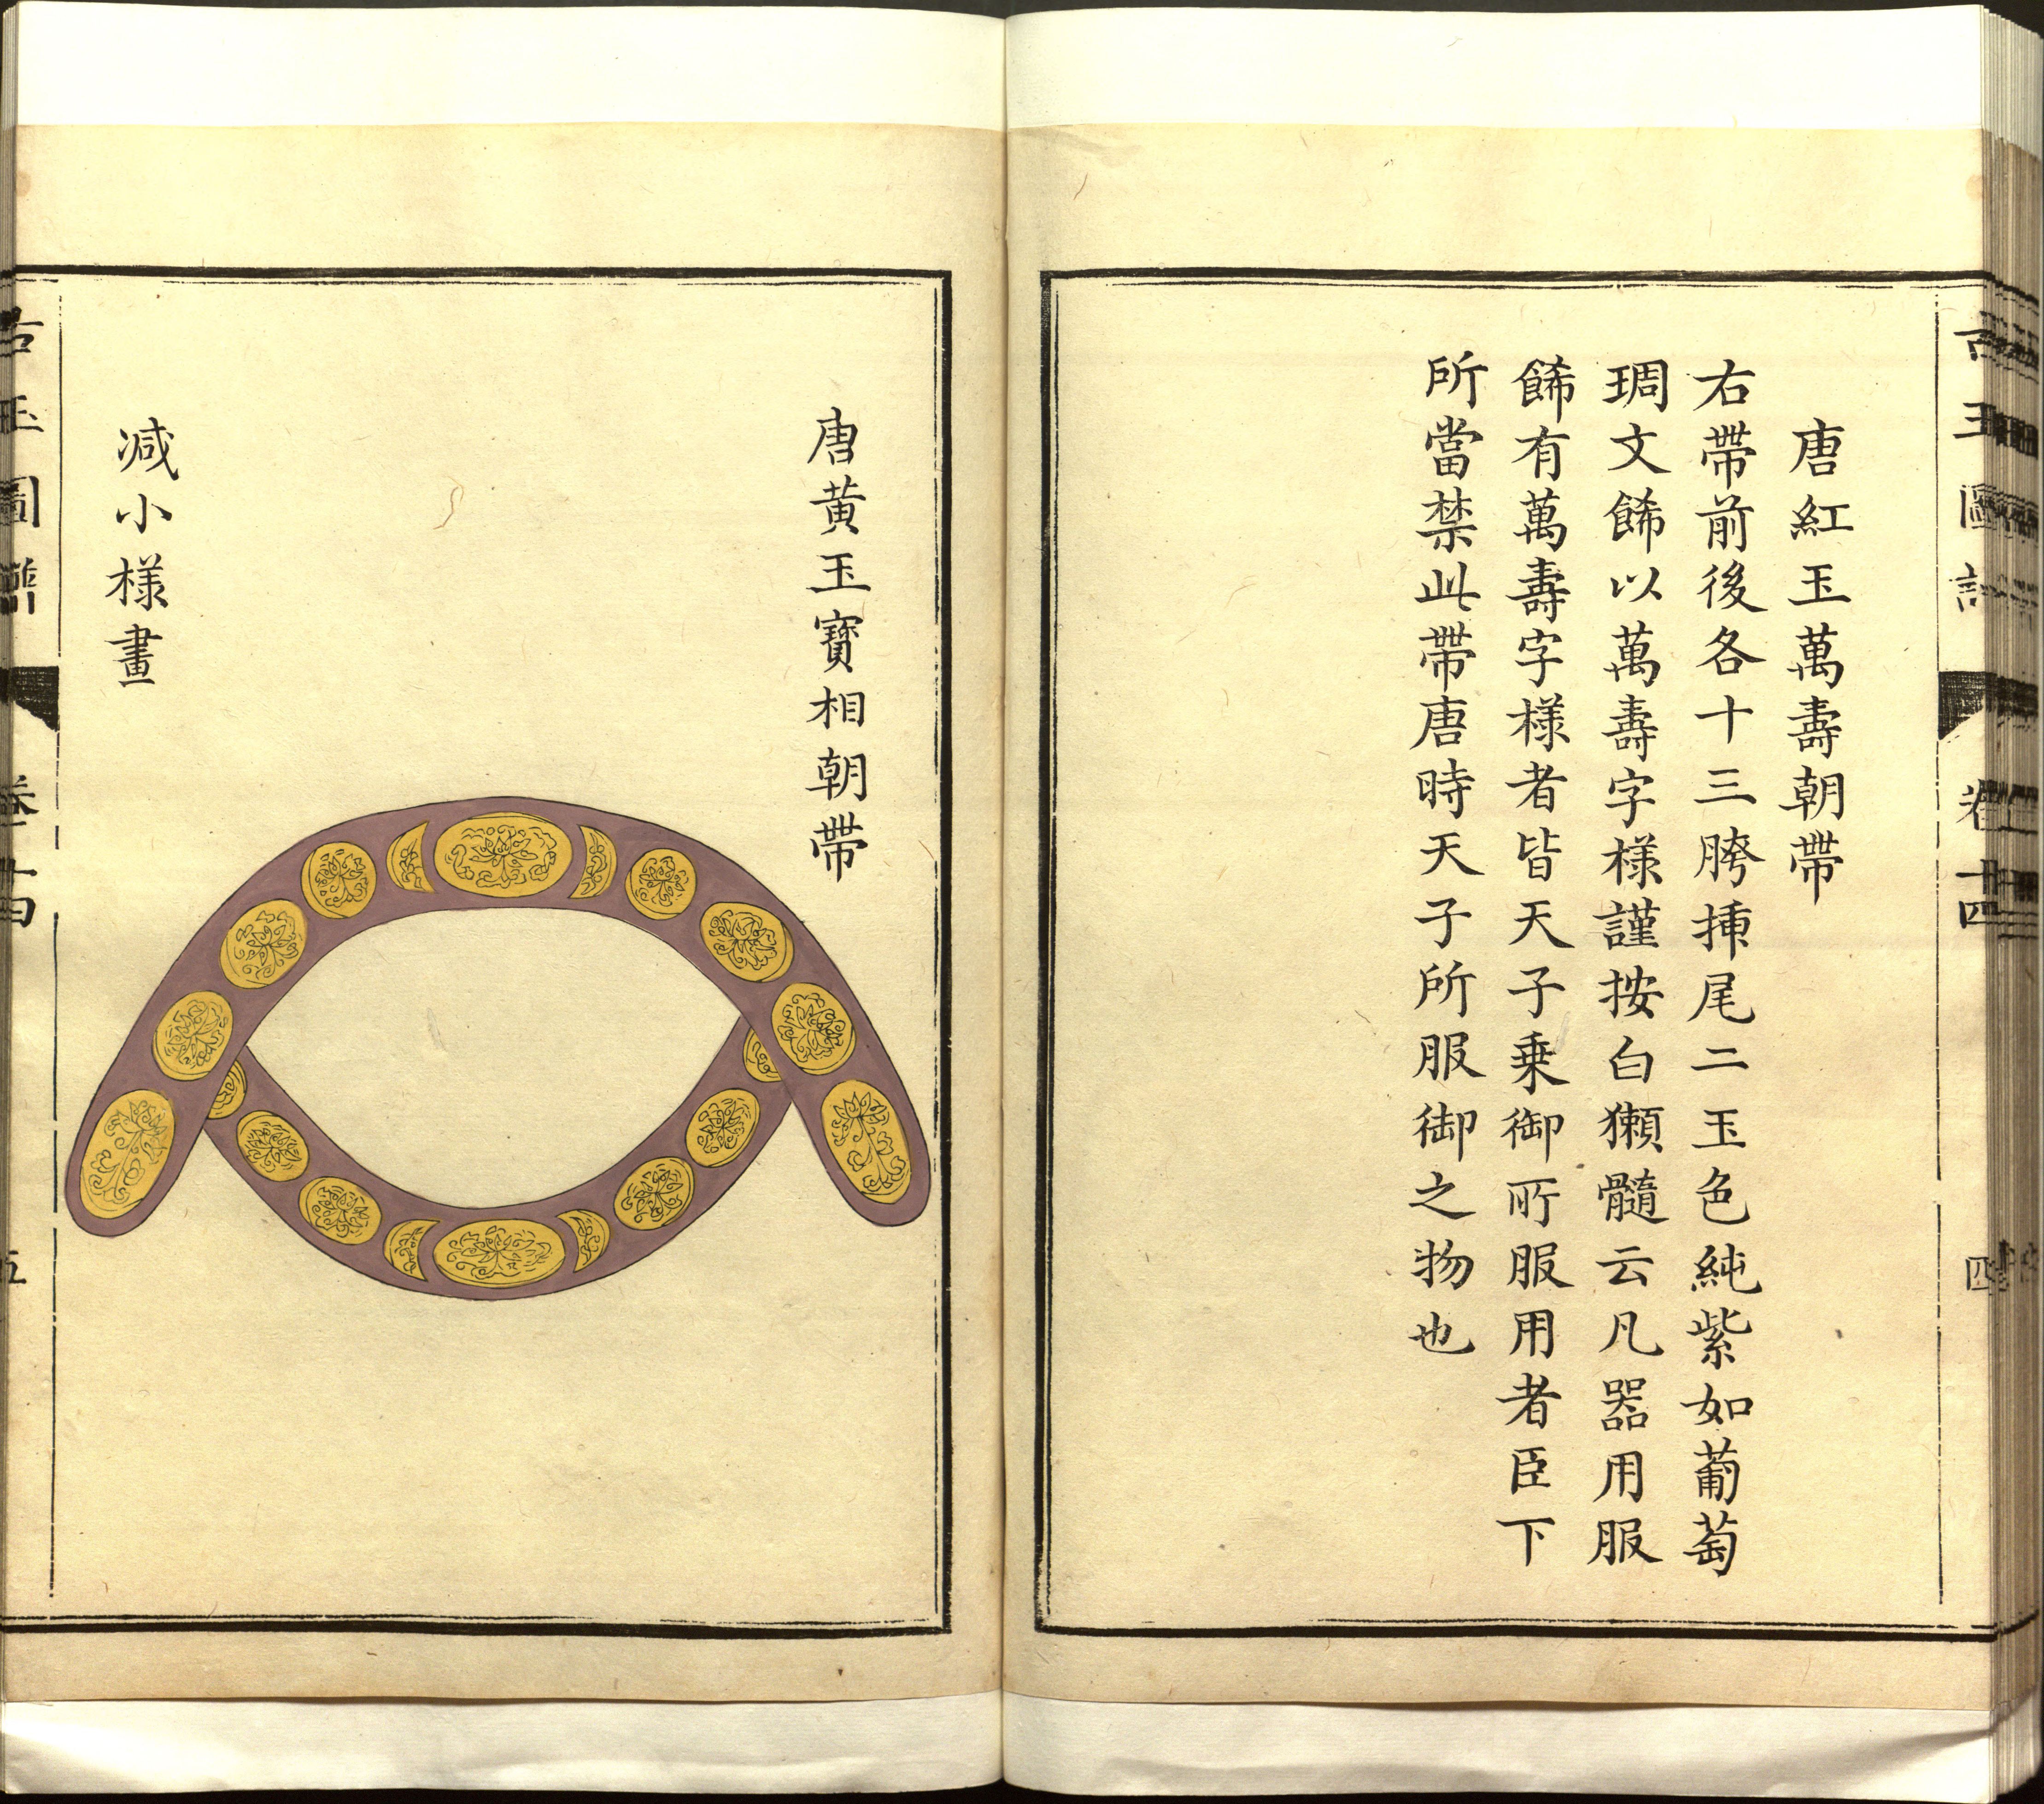 唐紅玉萬壽朝帶
右帶前後各十三胯揷尾二玉色純紫如葡萄
琱文餙以萬壽字様謹按白獺髓云凡器用服
餙有萬壽字様者皆天子乗御所服用者臣下
所當禁此帶唐時天子所服御之物也
卷十四
四
唐黄玉寳相朝帶
减小様畫
古玉圖譜
卷十四
五